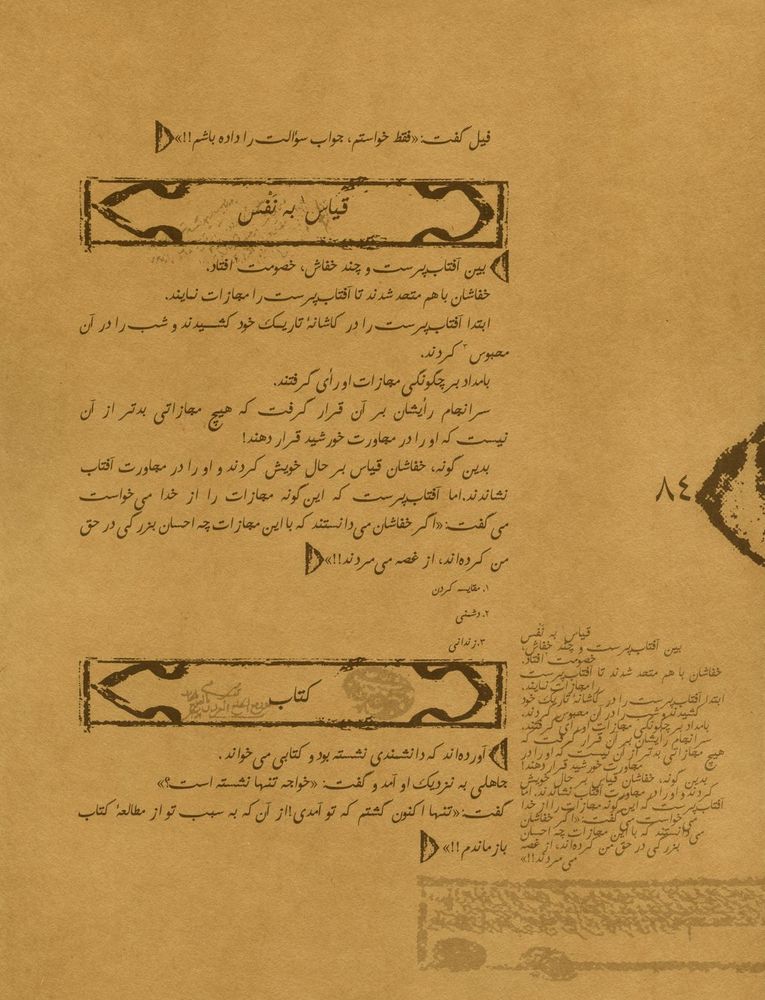 فیل گفت: «فقط خواستم، جواب سؤالت را داده باشم!!»
قیاس به نَفْس
بین آفتاب‌پرست و چند خفاش، خصومت افتاد.
خفاشان با هم متحد شدند تا آفتاب‌پرست را مجازات نمایند.
ابتدا آفتاب‌پرست را در کاشانهٔ تاریک خود کشیدند و شب را در آن
محبوس ۳ کردند.
بامداد بر چگونگی مجازات او رأی گرفتند.
سرانجام رأیشان بر آن قرار گرفت که هیچ مجازاتی بدتر از آن
نیست که او را در مجاورت خورشید قرار دهند!
بدین گونه، خفاشان قیاس بر حال خویش کردند و او را در مجاورت آفتاب
نشاندند. اما آفتاب‌پرست که این‌گونه مجازات را از خدا می‌خواست
می گفت: «اگر خفاشان می‌دانستند که با این مجازات چه احسان بزرگی در حق
من کرده‌اند، از غصه می‌مردند!!»
۱. مقایسه کردن
۲. دشمنی
۳. زندانی
۸۴
کتاب
آورده‌اند که دانشمندی نشسته بود و کتابی می‌خواند.
جاهلی به نزدیک او آمد و گفت: «خواجه تنها نشسته است؟»
گفت: «تنها اکنون گشتم که تو آمدی! از آن که به سبب تو از مطالعهٔ کتاب
بازماندم!!»
قیاس به نَفْس
بین آفتاب‌پرست و چند خفاش،
خصومت افتاد.
خفاشان با هم متحد شدند تا آفتاب‌پرست
را مجازات نمایند.
ابتدا آفتاب‌پرست را در کاشانهٔ تاریک خود
کشیدند و شب را در آن محبوس کردند.
بامداد بر چگونگی مجازات او رأی گرفتند.
سرانجام رأیشان بر آن قرار گرفت که
هیچ مجازاتی بدتر از آن نیست که او را در
مجاورت خورشید قرار دهند!
بدین گونه، خفاشان قیاس بر حال خویش
کردند و او را در مجاورت آفتاب نشاندند. اما
آفتاب‌پرست که این‌گونه مجازات را از خدا
می‌خواست می گفت: «اگر خفاشان
می‌دانستند که با این مجازات چه احسان
بزرگی در حق من کرده‌اند، از غصه
می‌مردند!!»